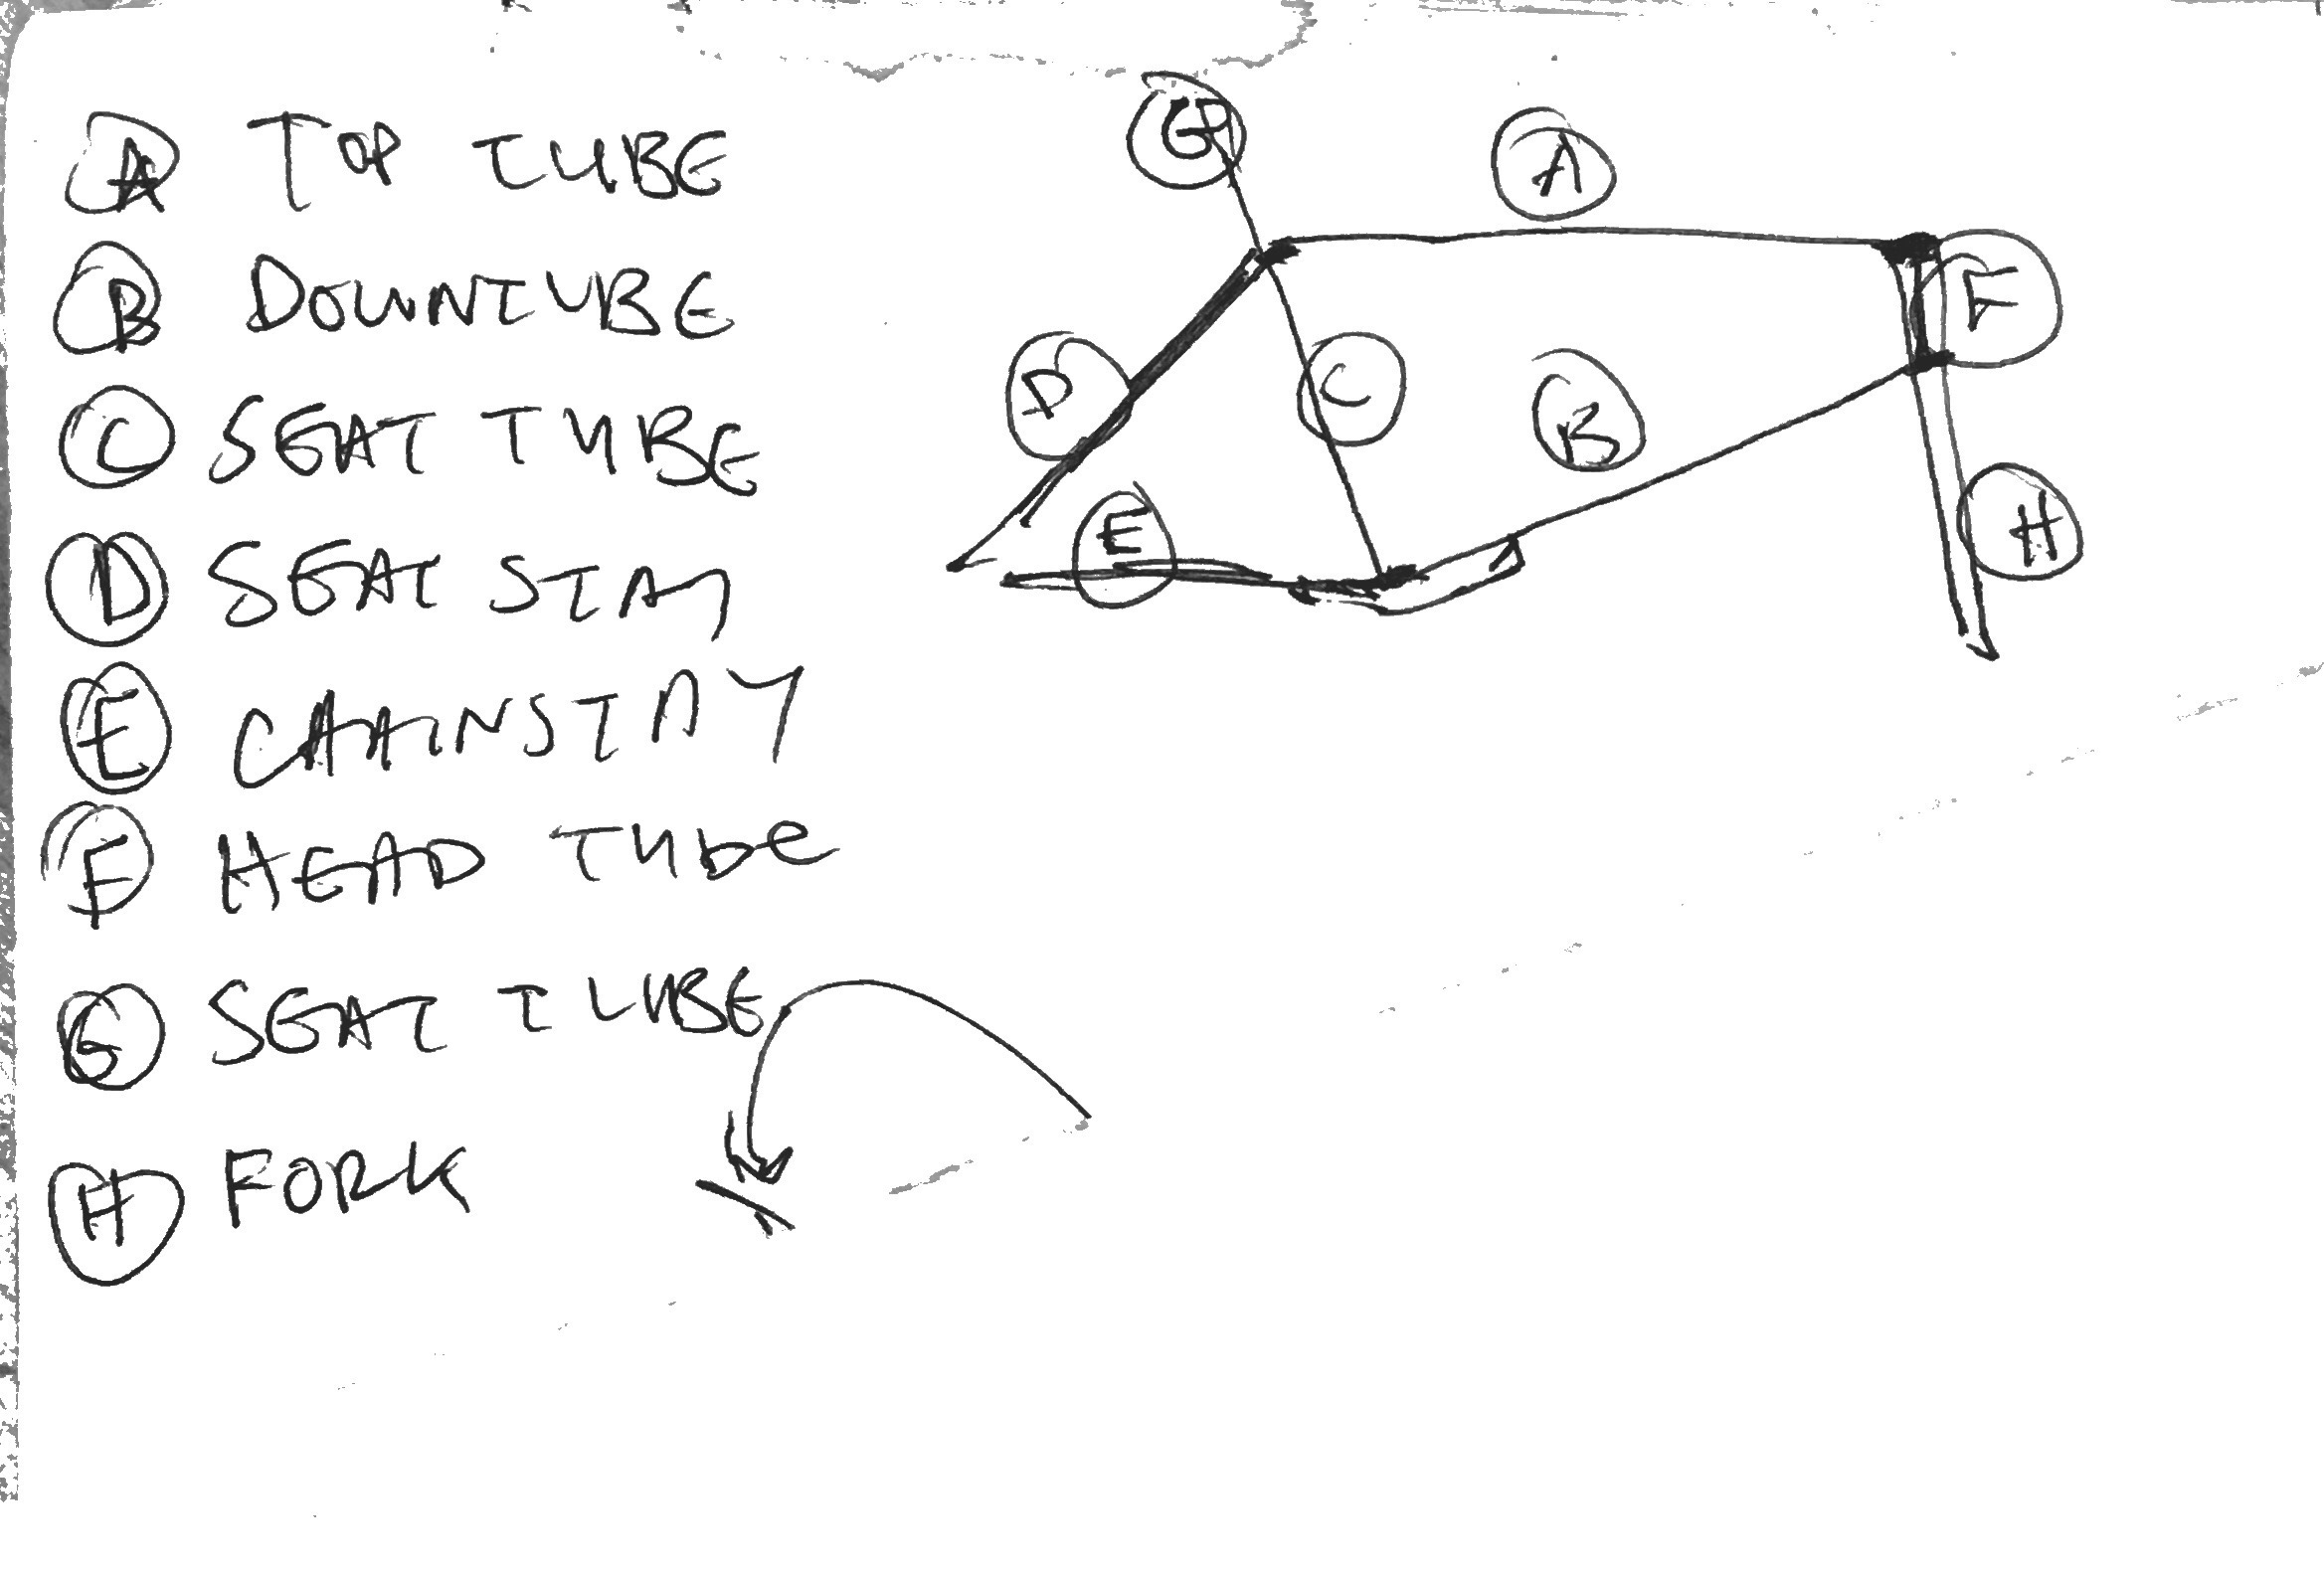 A TOP TUBE
B DOWNTUBE
C SEAT TUBE
D SEAT STAY
E CHAINSTAY
F HEAD TUBE
G SEAT TUBE
H FORK
G
A
F
D
C
B
E
H